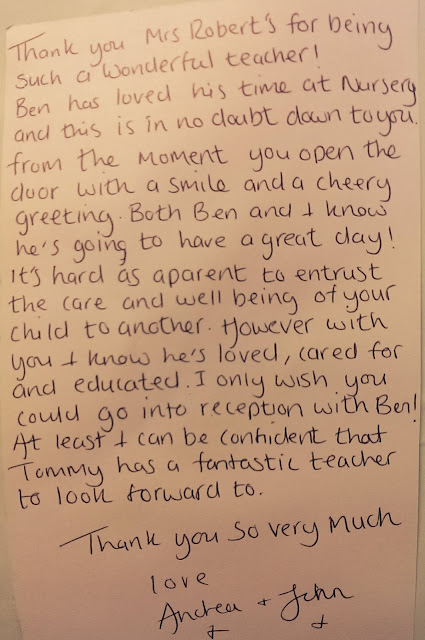 Thank you Mrs Robert's for being
such a wonderful teacher!
Ben has loved his time at Nursery
and this is in no doubt down to you.
from the moment you open the
door with a smile and a cheery
greeting. Both Ben and I know
he's going to have a great day!
It's hard as aparent to entrust
the care and well being of your
child to another. However with
you I know he's loved, cared for
and educated. I only wish you
could go into reception with Ben!
At least I can be confident that
Tommy has a fantastic teacher
to look forward to.
Thank you so very much
love
Andrea + John